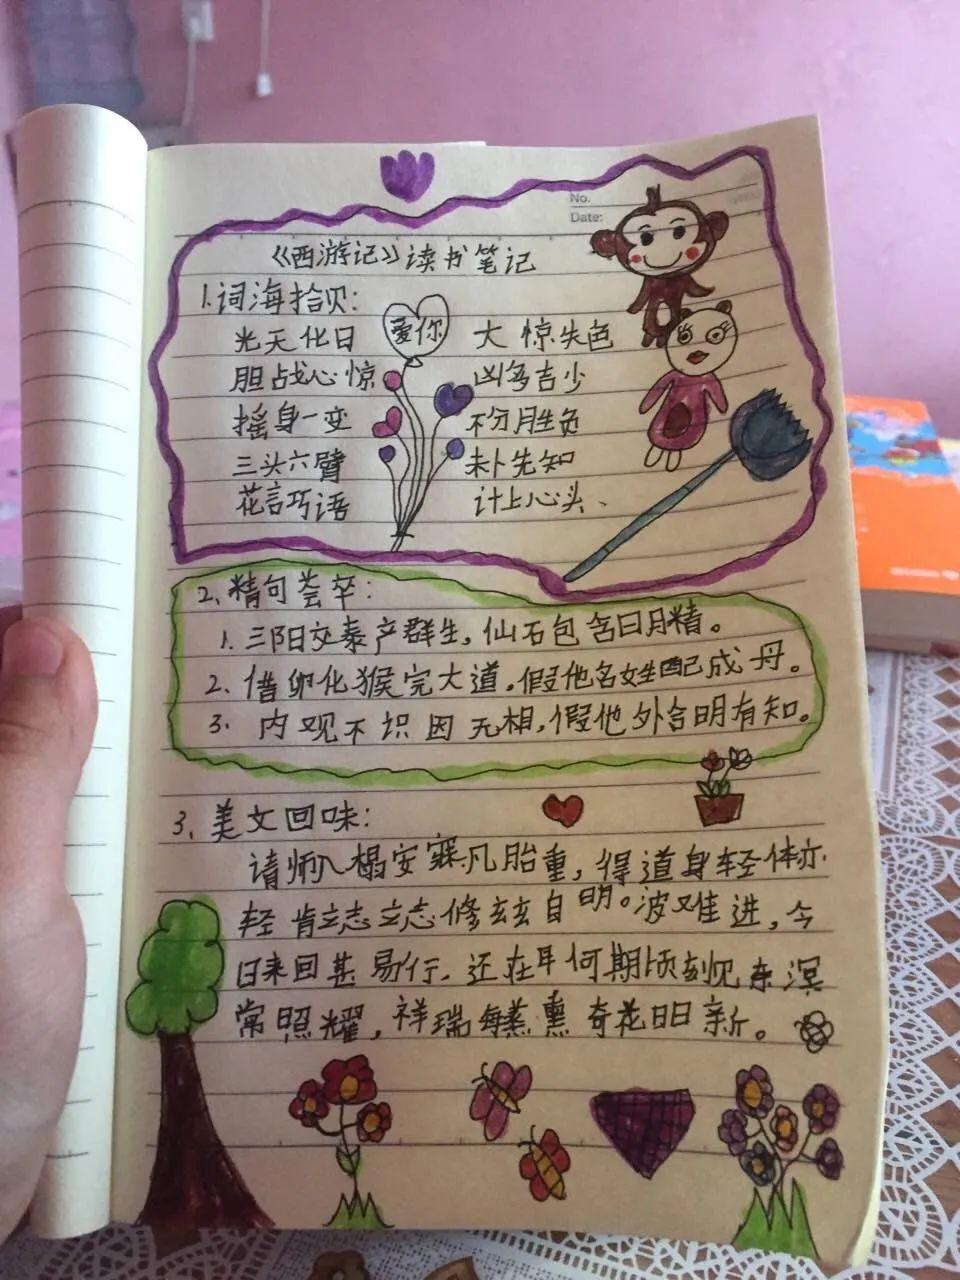 No.
Date:
《西游记》读书笔记
1.词海拾贝:
光天化日 爱你 大惊失色
胆战心惊 凶多吉少
摇身一变 不分胜负
三头六臂 未卜先知
花言巧语 计上心头、
2.精句荟卒:
1.三阳交泰产群生,仙石包含日月精。
2.借卵化猴完大道.假他名姓配成丹。
3.内观不识因无相,假他外合明有知。
3、美文回味:
请师入榻安寐凡胎重,得道身轻体亦
轻肯立志立志修玄玄自明。波难进,今
日来回甚易行.还在耳何期顷刻见东溟
常照耀,祥瑞每蒸熏奇花日日新。